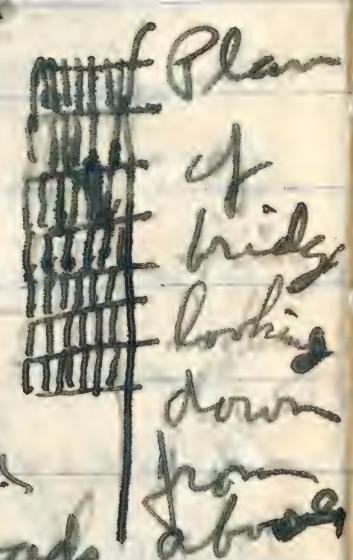 Plan
of
bridg
looking
down
from
above